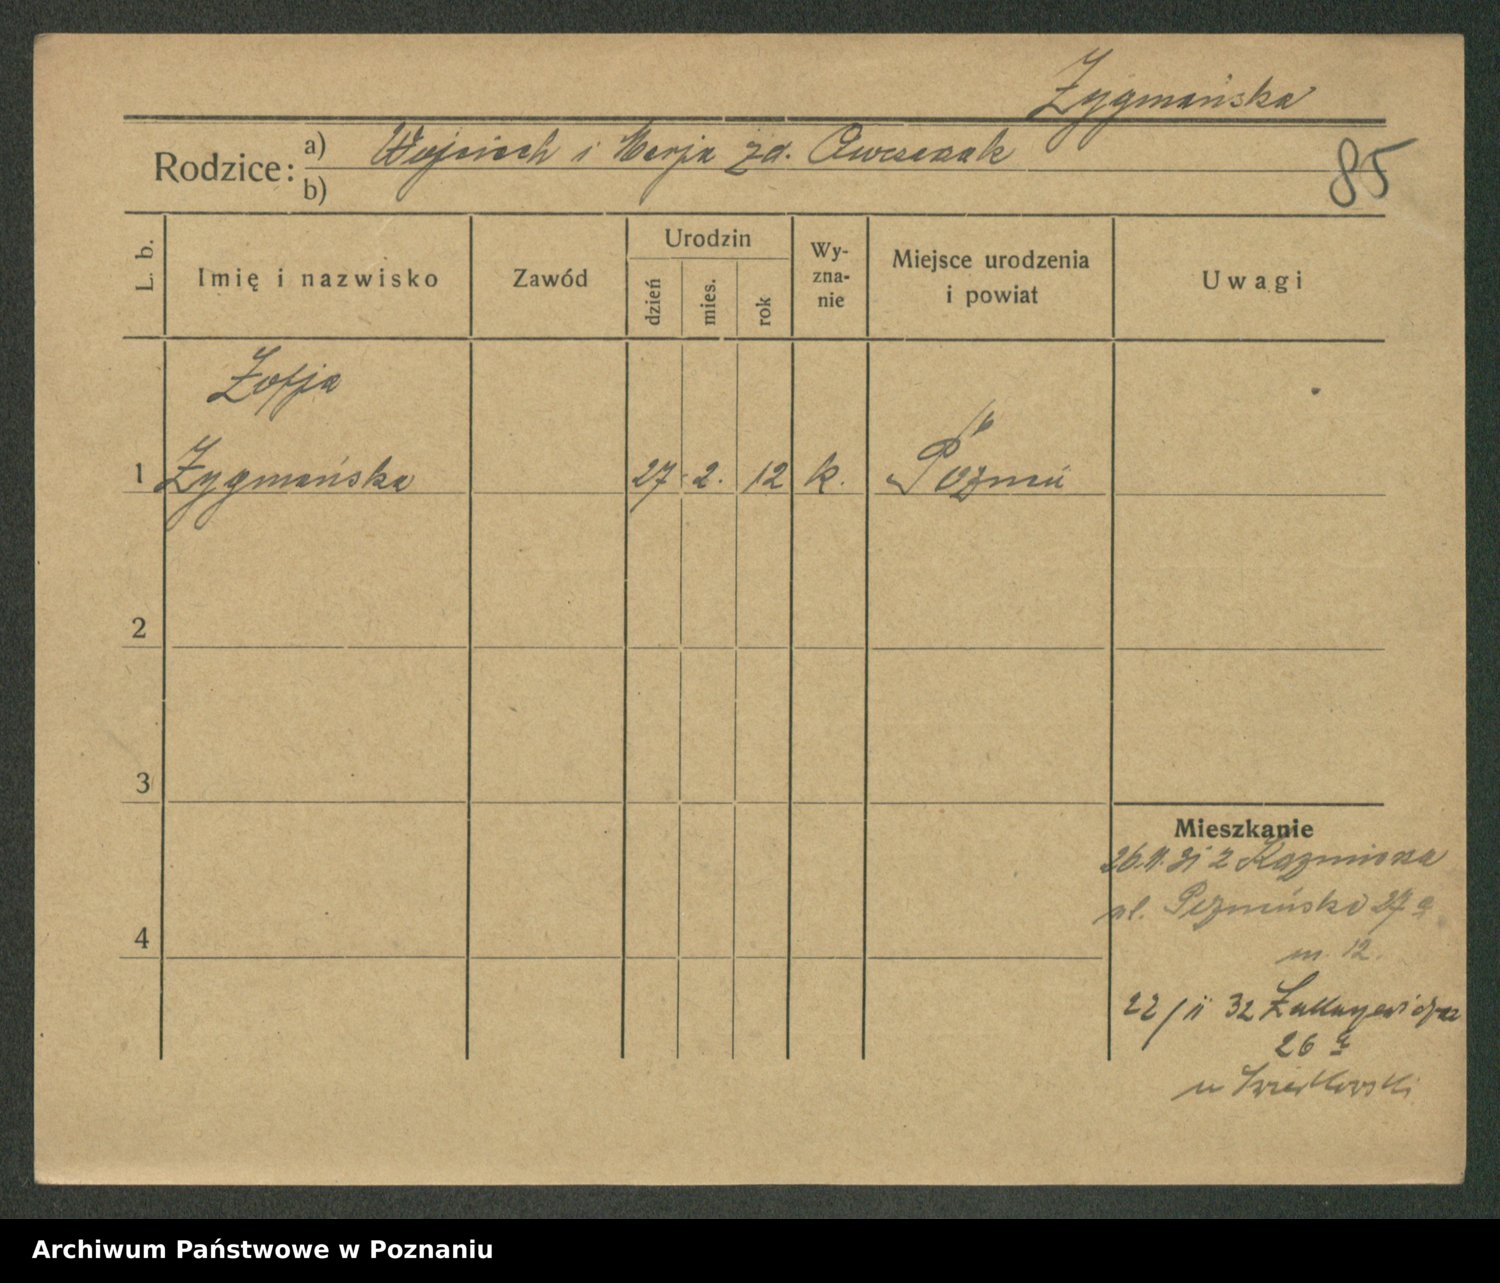 Zygmańska
Rodzice: a) Wojciech i Marja zd. Owczarzak
b)
85
L. b.
Imię i nazwisko
Zawód
Urodzin
dzień
mies.
rok
Wy-
zna-
nie
Miejsce urodzenia
i powiat
Uwagi
Zofja
1 Zygmańska 27 2. 12 k. Poznań
2
3
4
Mieszkanie
26.11.31 z Kazmierza
ul. Poznańska 27 a
m. 12.
22/11 32
26 a
u
Archiwum Państwowe w Poznaniu